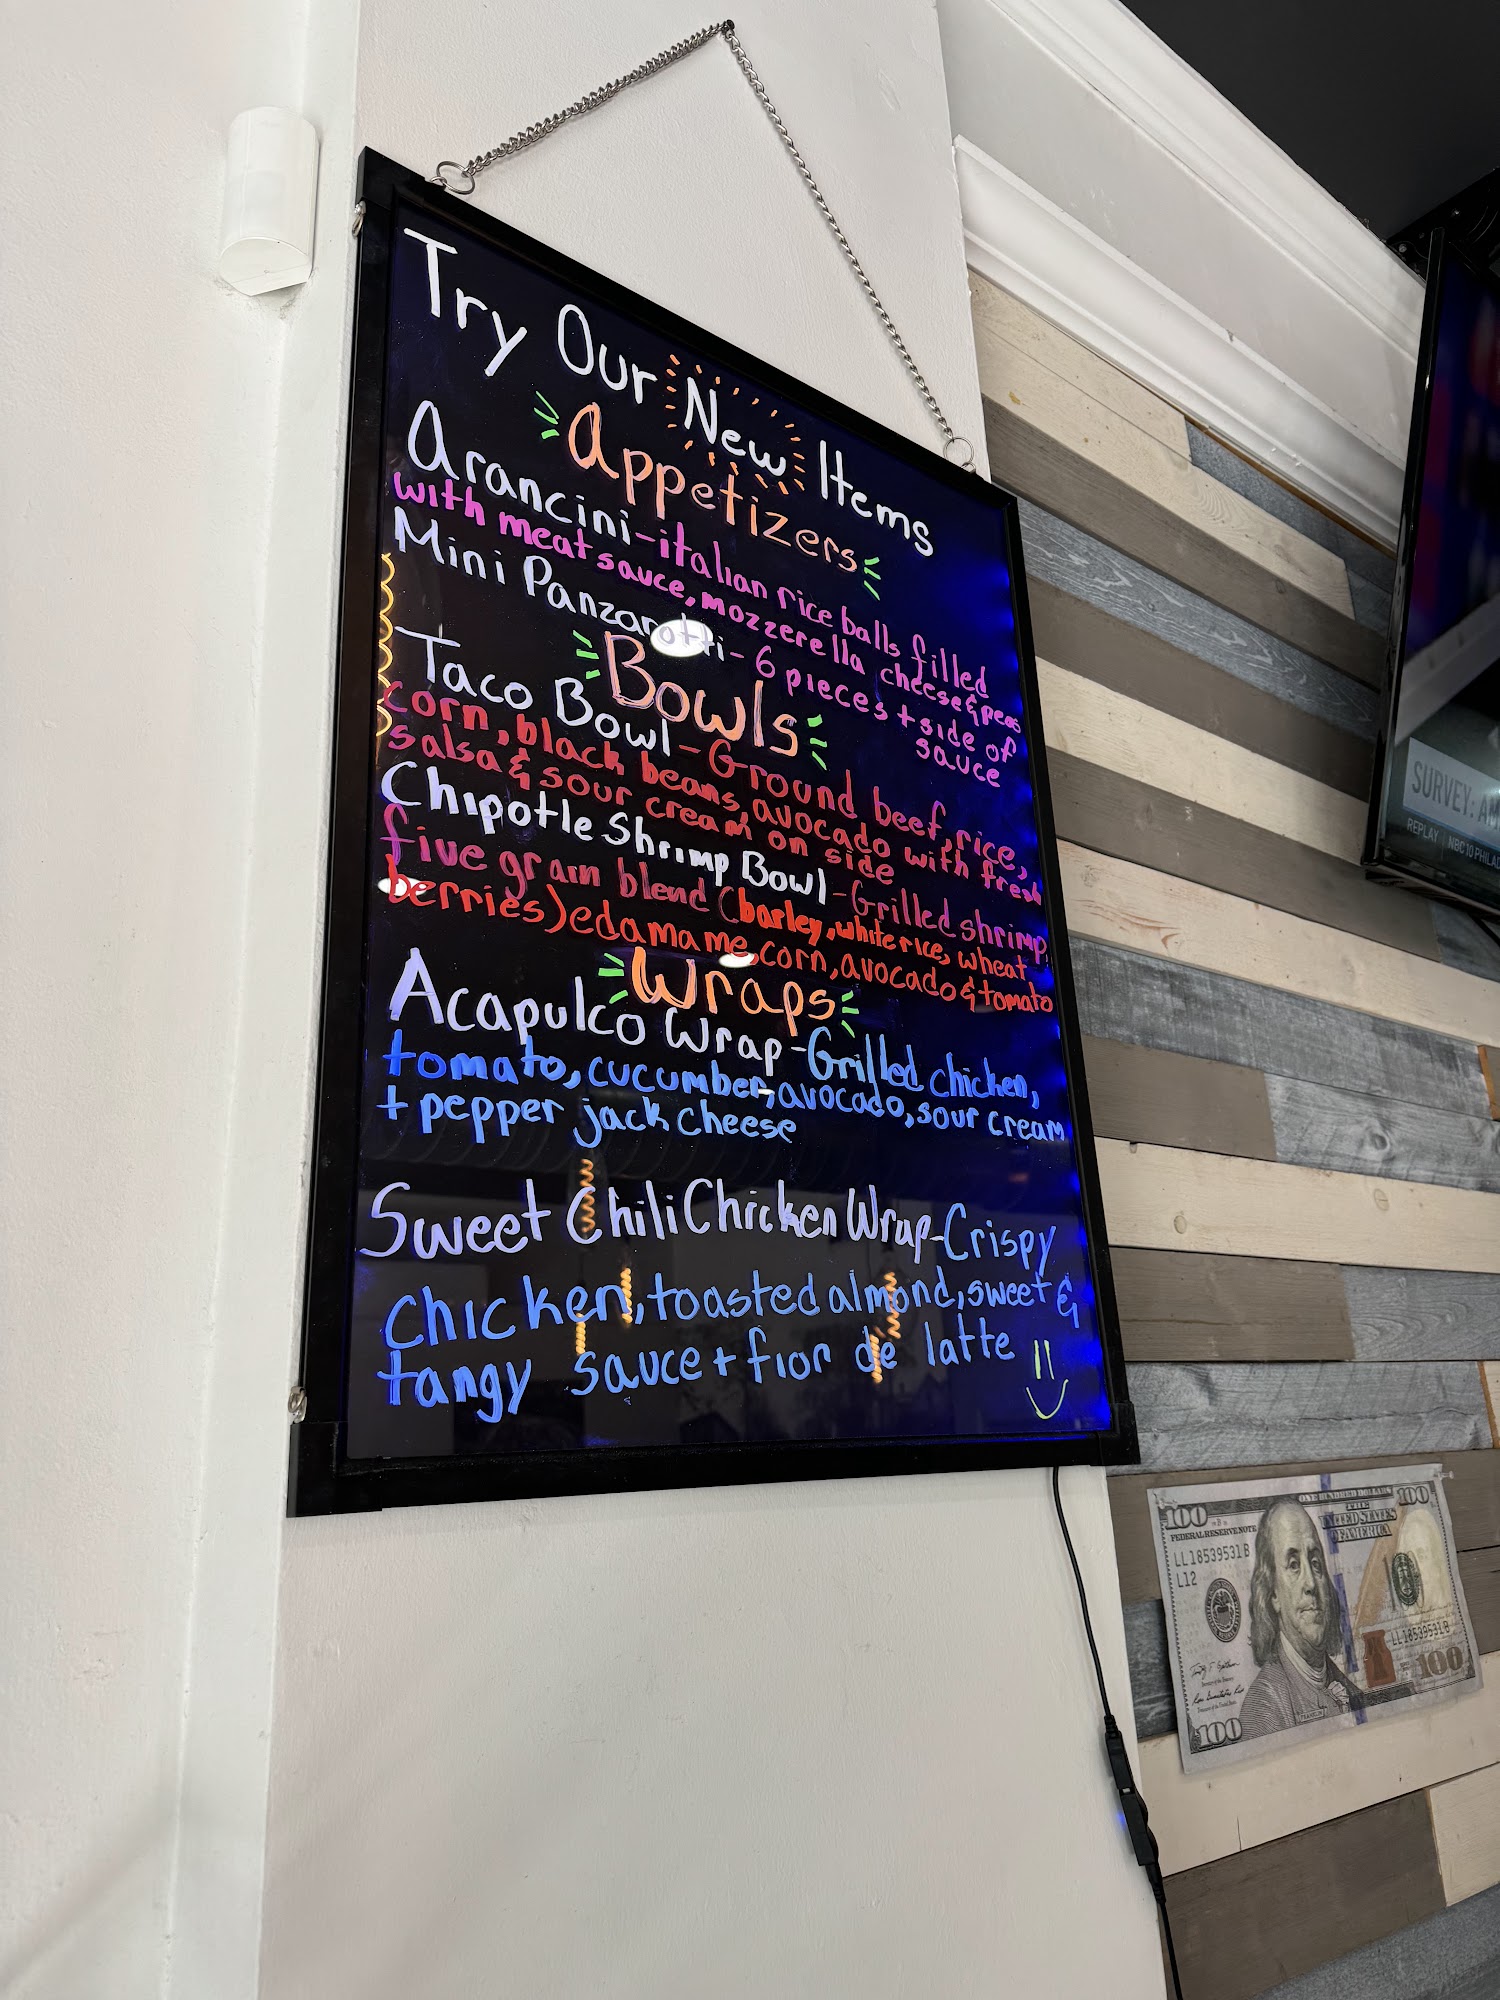 Try Our New Items
Appetizers
Arancini-italian rice balls filled
with meat sauce, mozzerella cheese & peas
Mini Panzarotti- 6 pieces + side of
sauce
Bowls
Taco Bowl - Ground beef, rice,
corn, black beans, avocado with fresh
salsa & sour cream on side
Chipotle Shrimp Bowl - Grilled shrimp,
five grain blend (barley, white rice, wheat
berries) edamame, corn, avocado & tomato
Wraps
Acapulco Wrap - Grilled chicken,
tomato, cucumber, avocado, sour cream
+ pepper jack cheese
Sweet Chili Chicken Wrap - Crispy
chicken, toasted almond, sweet &
tangy sauce + fior de latte
SURVEY: AM
REPLAY | NBC10 PHILAD
100
ONE HUNDRED DOLLARS
100
FEDERAL RESERVE NOTE
THE
UNITED STATES
OF AMERICA
LL18539531B
L12
LL18539531B
100
FRANKLIN
100